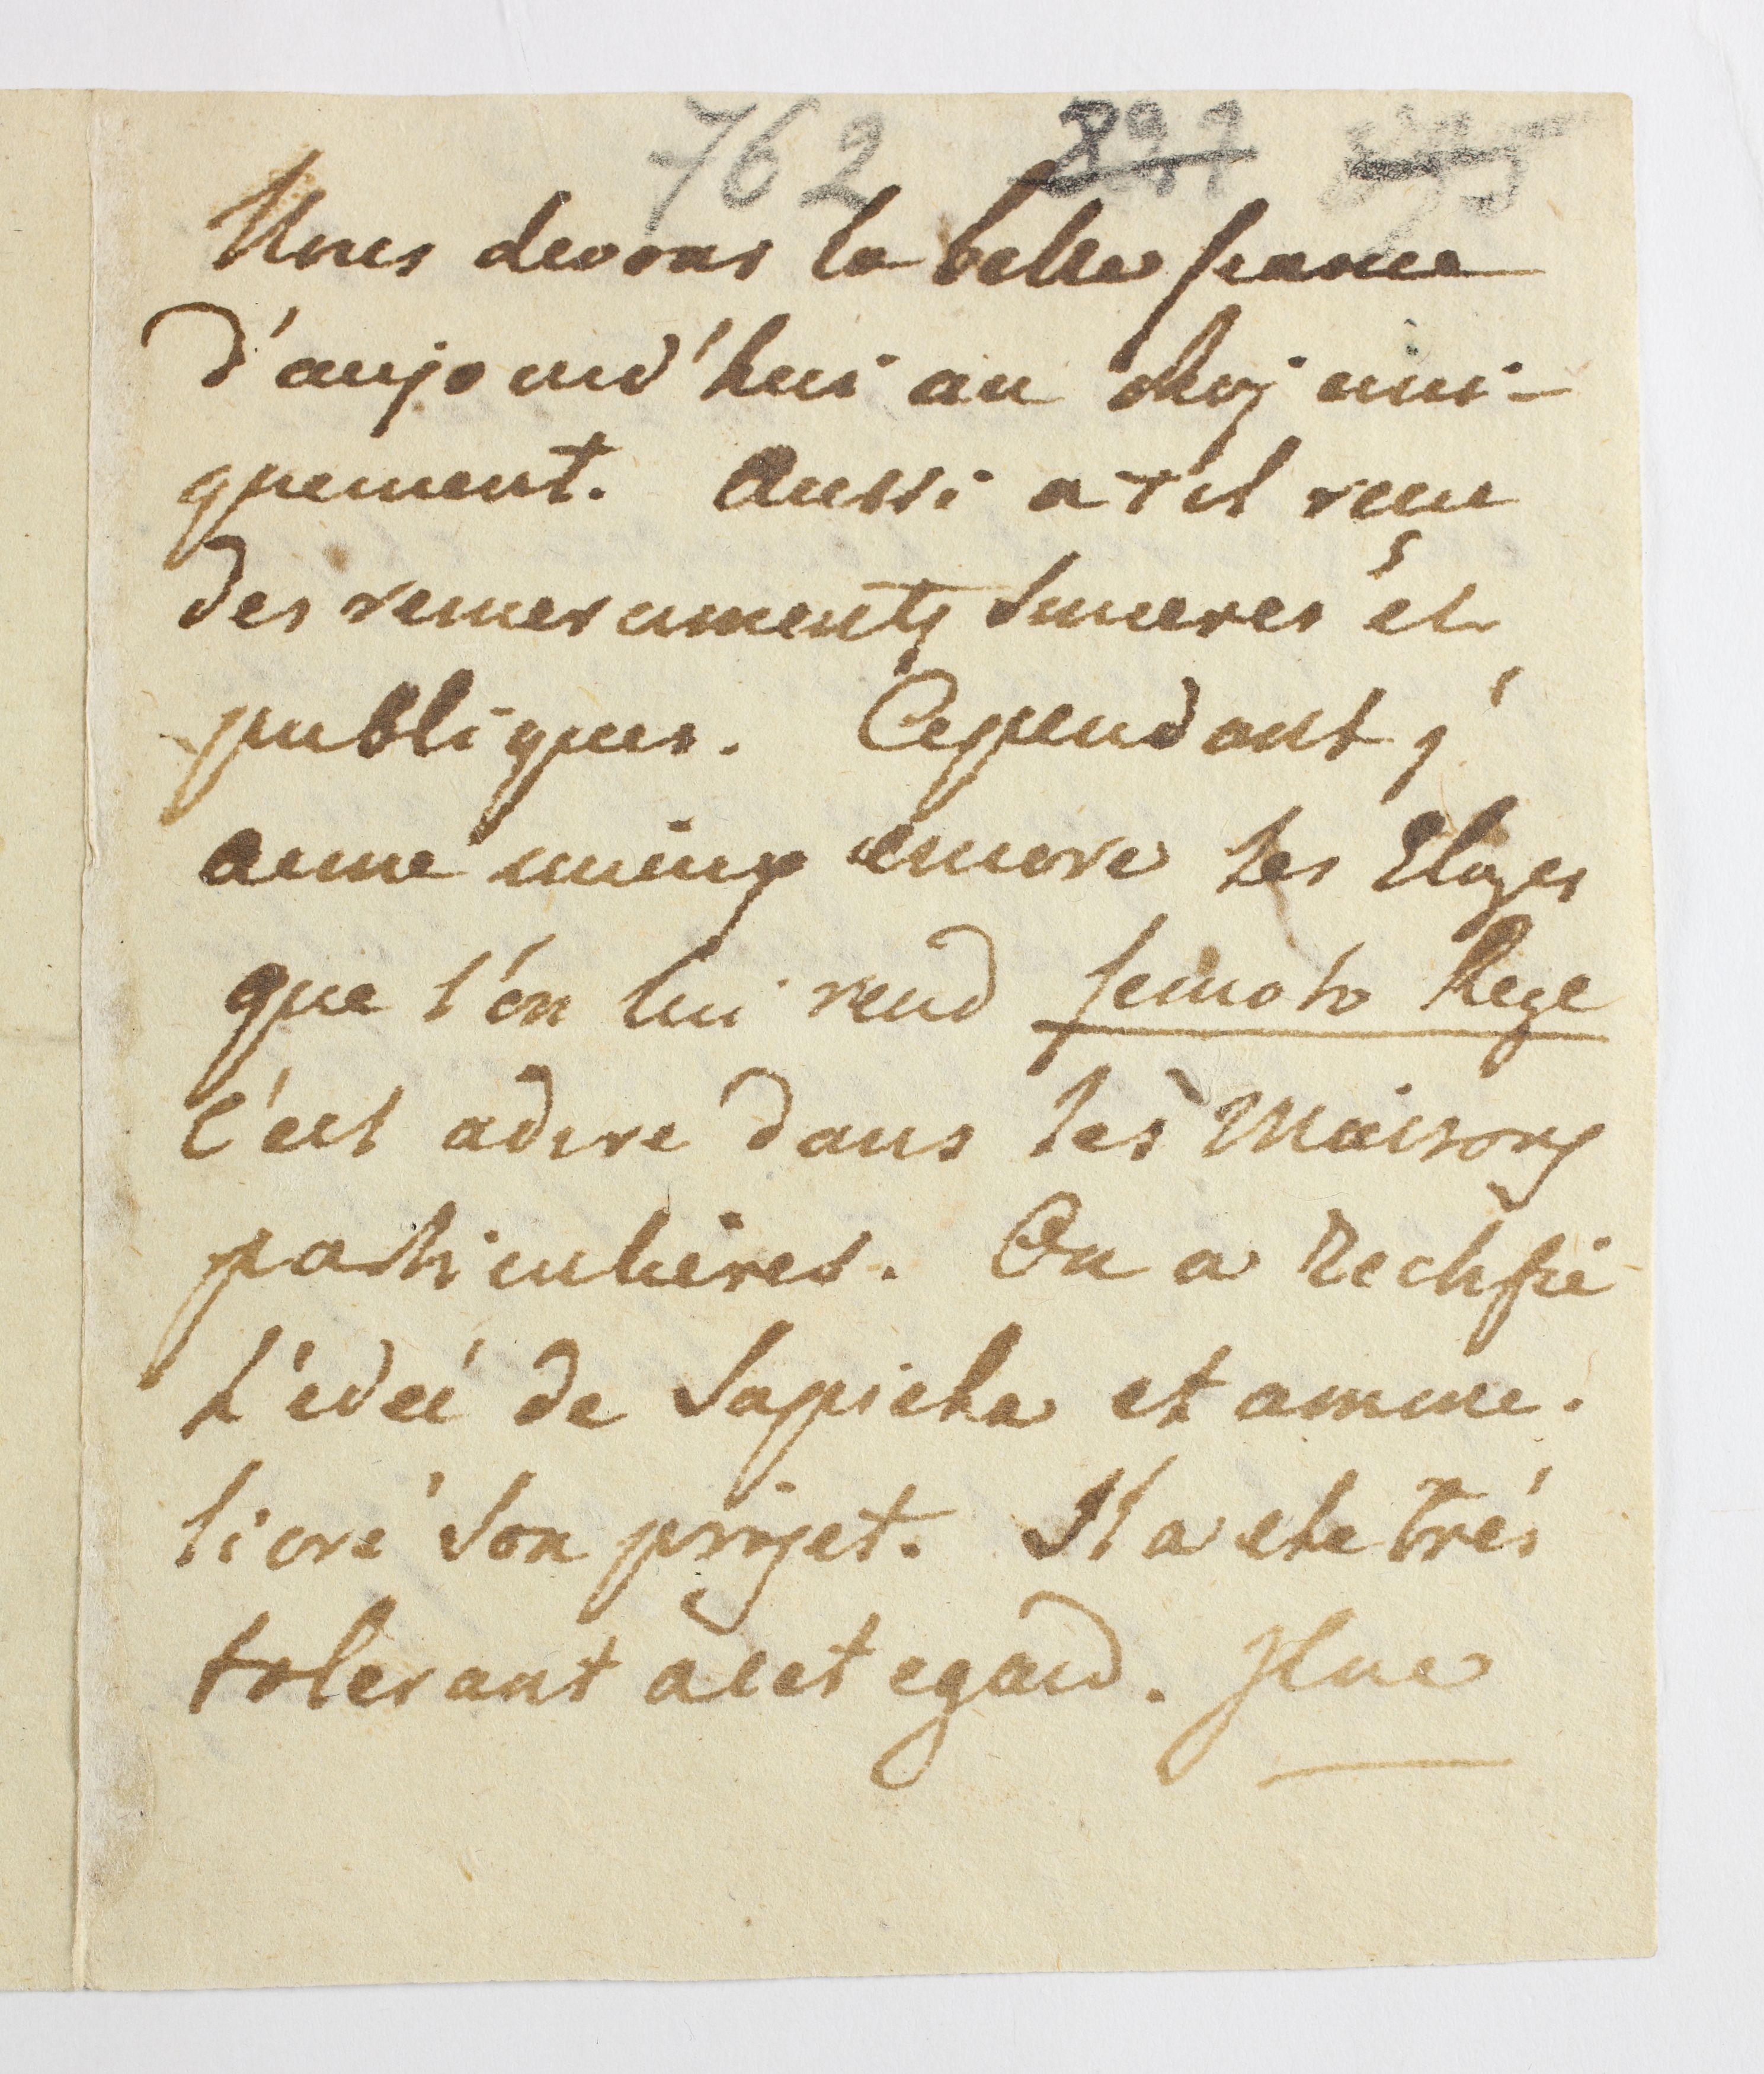 762
Nous devons la belle seance
d'aujourd'hui au Roy uni-
quement. Aussi a t'il reçu
des remerciments sinceres et
publiques. Cependant j'
aime mieux encore les Eloges
que l'on lui rend semoto Rege
C'est adire dans les Maisons
particulieres. On a Rectifié
L'ideé de Sapieha et amme.
lioré son projet. Il a ete très
tolerant a cet egard. Il ne